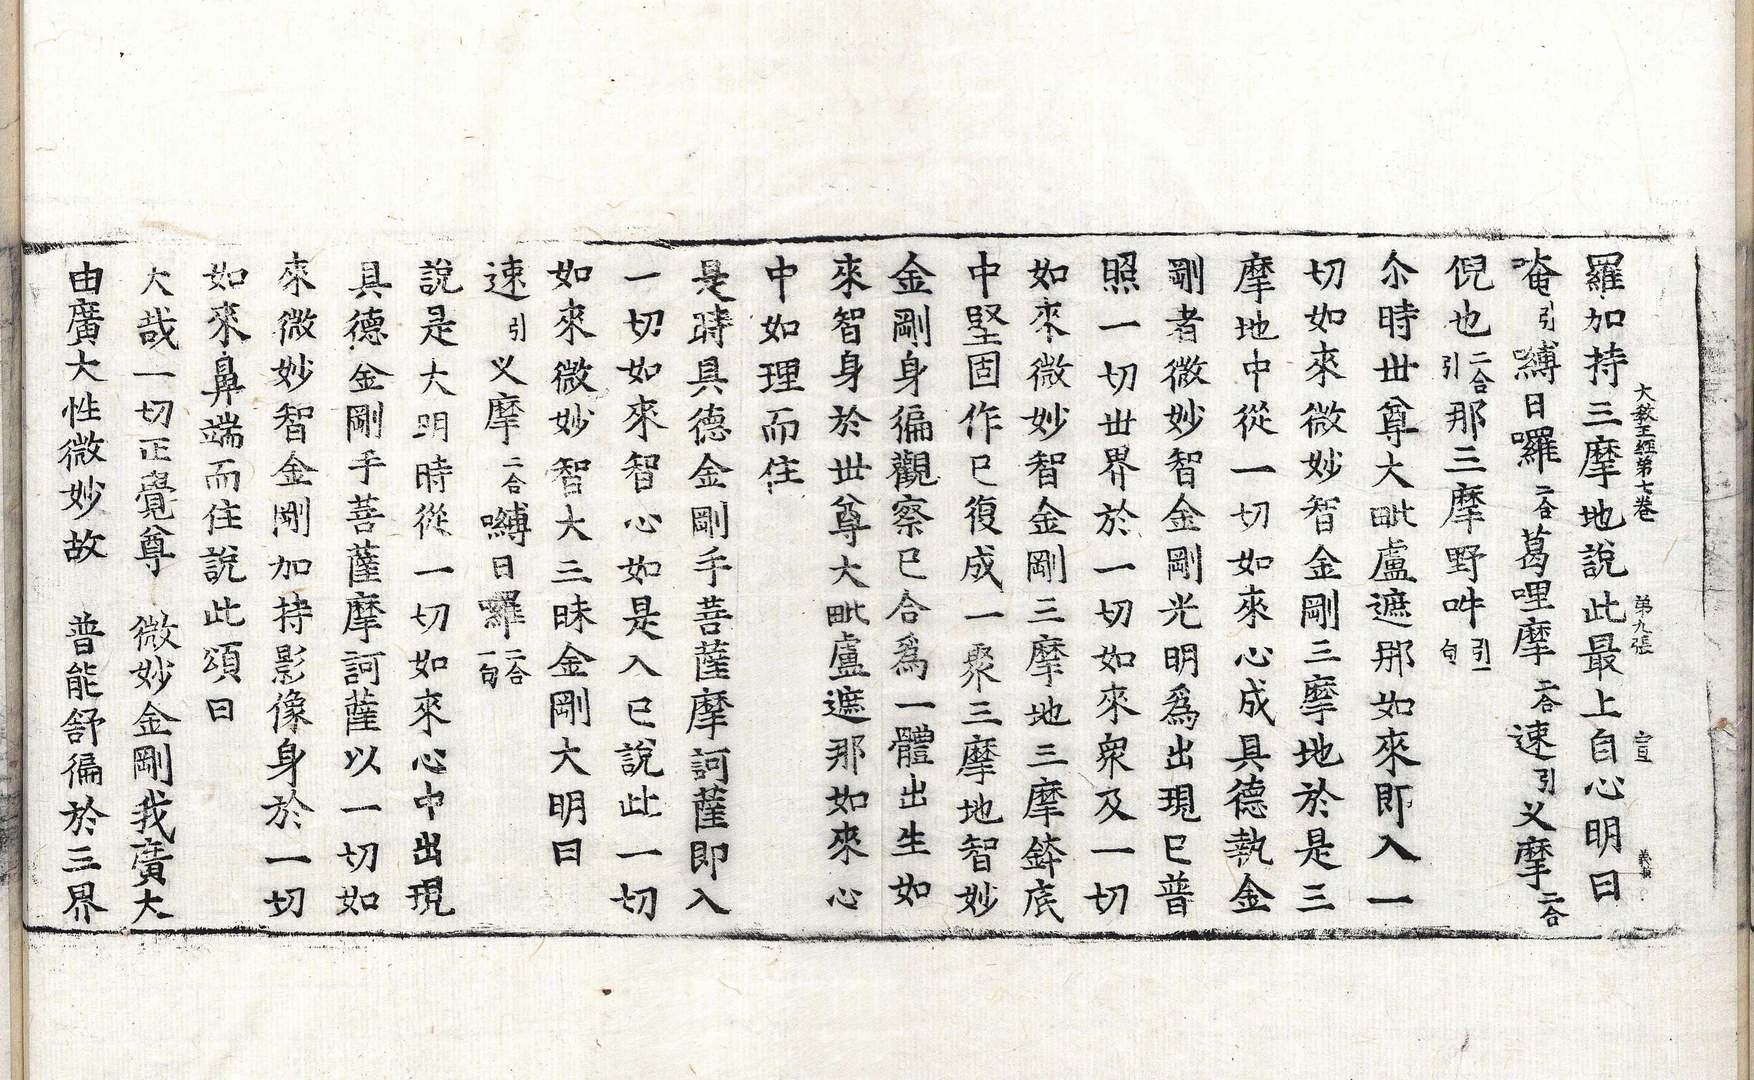 大教王經第七卷　第九張　宣
羅加持三摩地說此最上自心明曰
唵引嚩日囉二合葛哩摩二合速引叉摩二合
倪也二合引那三摩野吽引一句
尒時世尊大毗盧遮那如來即入一
切如來微妙智金剛三摩地於是三
摩地中從一切如來心成具德執金
剛者微妙智金剛光明爲出現已普
照一切世界於一切如來衆及一切
如來微妙智金剛三摩地三摩鉢底
中堅固作已復成一聚三摩地智妙
金剛身徧觀察已合爲一體出生如
來智身於世尊大毗盧遮那如來心
中如理而住
是時具德金剛手菩薩摩訶薩即入
一切如來智心如是入已說此一切
如來微妙智大三昧金剛大明曰
速引叉摩二合嚩日囉二合一句
說是大明時從一切如來心中出現
具德金剛手菩薩摩訶薩以一切如
來微妙智金剛加持影像身於一切
如來鼻端而住說此頌曰
大哉一切正覺尊　微妙金剛我廣大
由廣大性微妙故　普能舒徧於三界